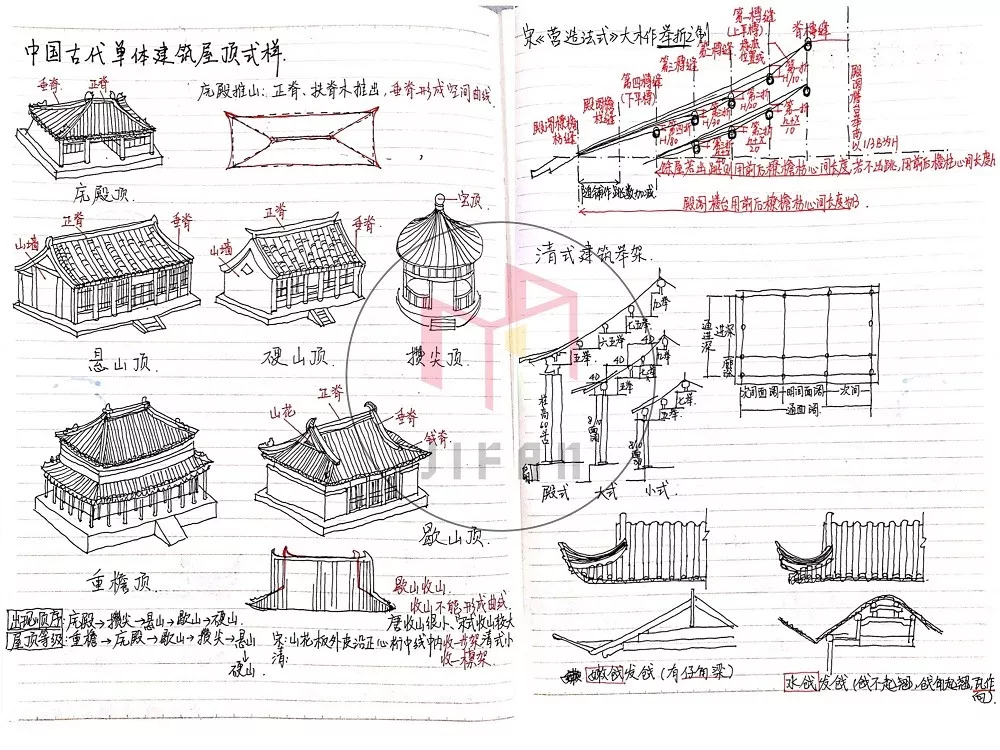 中国古代单体建筑屋顶式样.
垂脊 正脊
庑殿推山: 正脊、扶脊木推出, 垂脊形成空间曲线.
庑殿顶
山墙 正脊 垂脊
悬山顶
山墙 正脊 垂脊
硬山顶.
宝顶
攒尖顶.
重檐顶.
山花 正脊 垂脊 戗脊
歇山顶.
歇山收山.
收山不能形成曲线.
唐收山很小、宋式收山较大
出现顺序: 庑殿→攒尖→悬山→歇山→硬山.
屋顶等级: 重檐→庑殿→歇山→攒尖→悬山
硬山.
宋: 山花板外皮沿正心桁中线中内收一步架 清式小
清: 收一檩架.
宋《营造法式》大木作举折之制
第一槫缝
(上平槫)
第二槫缝
第三槫缝
第四槫缝
(下平槫)
脊槫缝
第一折
H/10
第二折
H/20
第四折
H/80
以1/3B为H
殿阁楼台用前后橑檐枋心间长度
清式建筑举架.
五举 六五举 七五举 九举
4D 4D
五举 七举 九举
五举 七举
殿式 大式 小式.
通进深
进深
廊深
次间面阔 明间面阔 次间
通面阔
JIFAN
嫩戗发戗 (有仔角梁)
水戗发戗